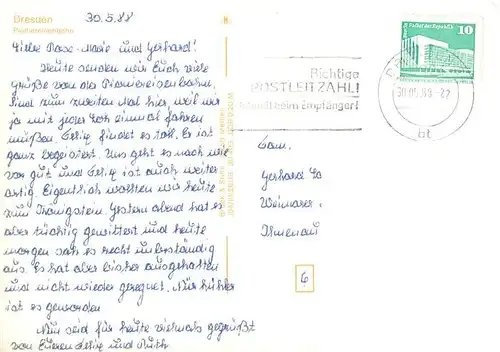 Dresden
Pioniereisenbahn
30.5.88
Liebe Rose-Marie und Gerhard!
Heute senden wir Euch viele
Grüße von der Pioniereisenbahn.
Sind zum zweiten Mal hier, weil wir
ja mit jeder Lok einmal fahren
müßen. Felix findet es toll. Er ist
ganz begeistert. Uns geht es nach wie
vor gut und Felix ist auch weiter
artig. Eigentlich wollten wir heute
zum Königstein. Gestern abend hat es
aber tüchtig gewittert und heute
morgen sah es recht unbeständig
aus. Es hat aber bisher ausgehalten
und nicht wieder geregnet. Nur kühler
ist es geworden.
Nun seid für heute vielmals gegrüßt
von Euren Felix und Ruth.
Richtige
POSTLEITZAHL!
beim Empfänger!
Palast der Republik
10
30.05.88-22
bt
Fam.
Gerhard
Weimarer-
Ilmenau
6